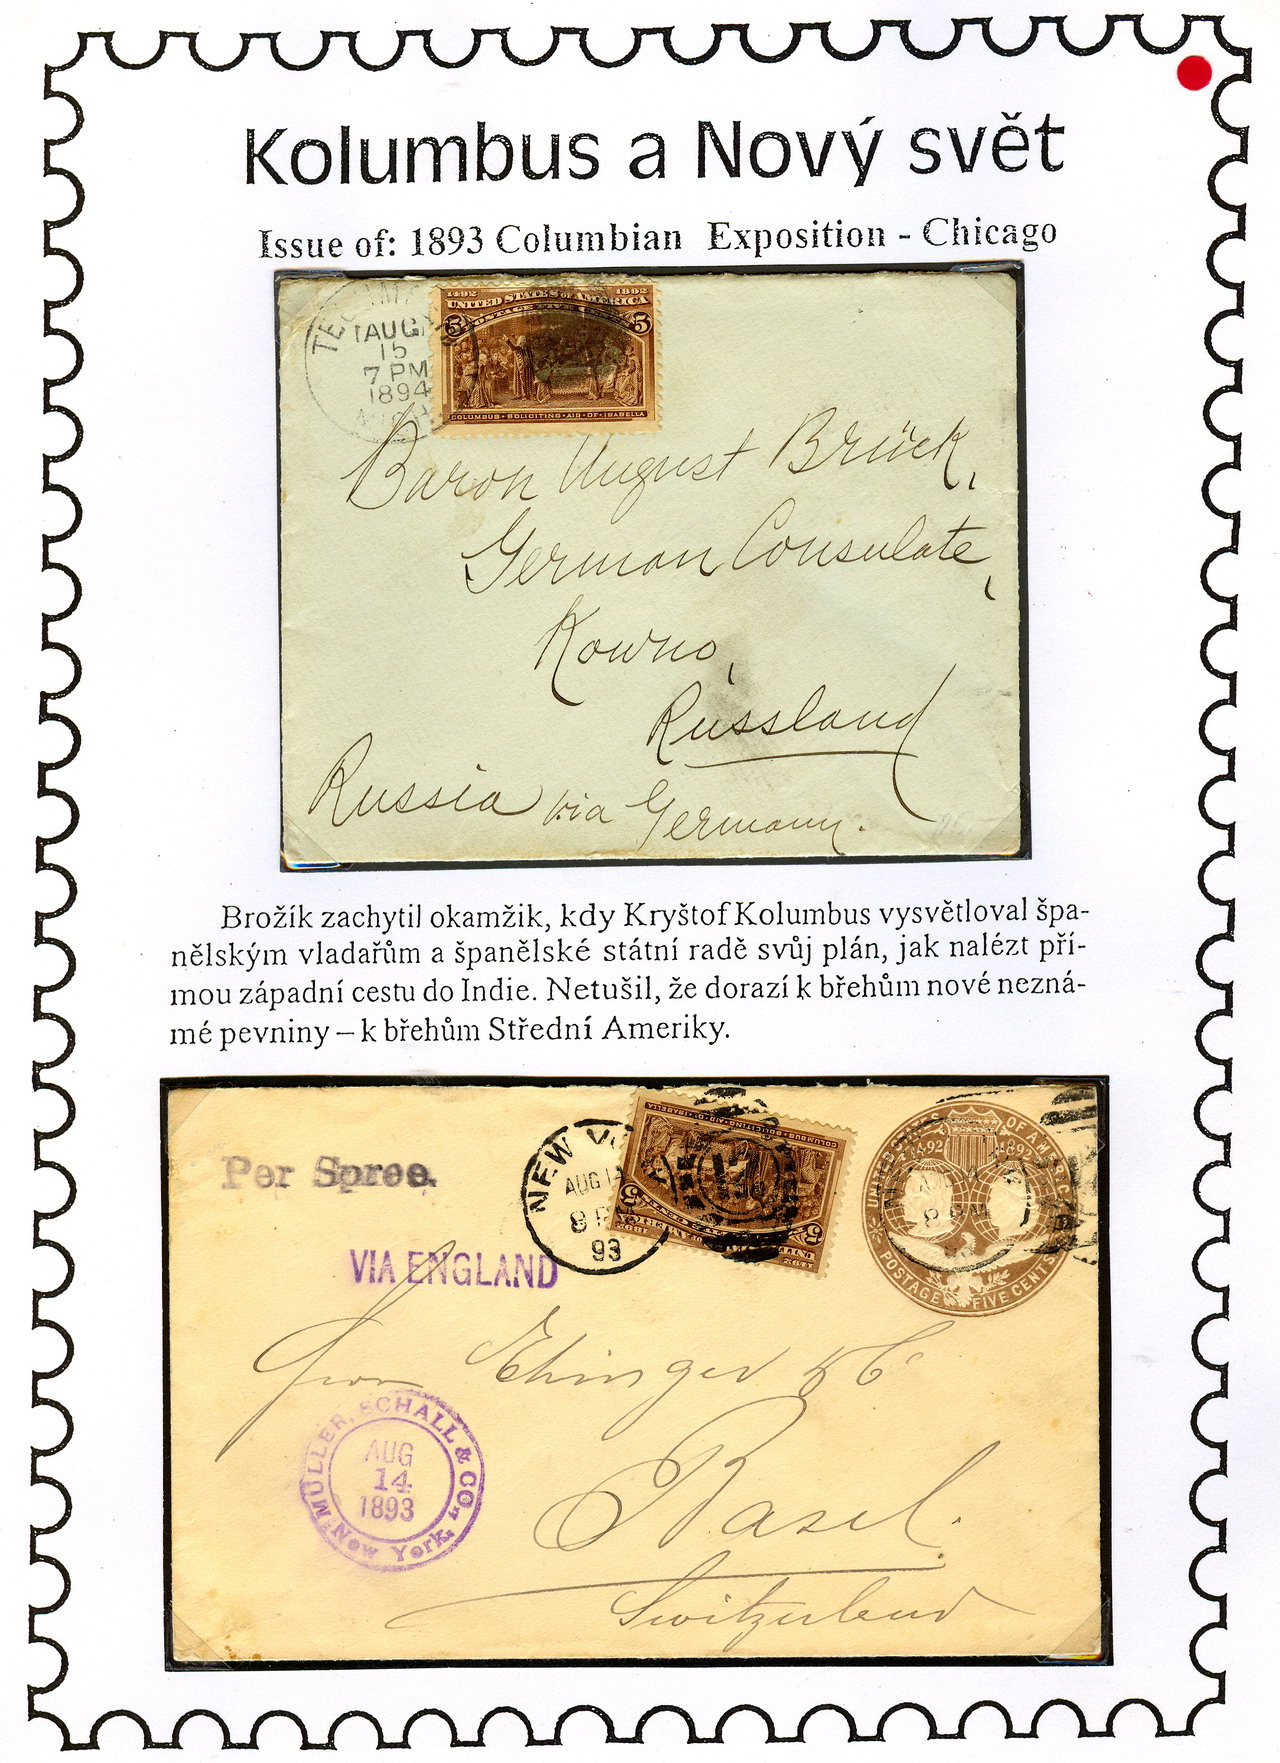 Kolumbus a Nový svět
Issue of: 1893 Columbian Exposition - Chicago
AUG
15
7 PM
1894
1492 1892
UNITED STATES OF AMERICA
POSTAGE FIVE CENTS
5 5
COLUMBUS SOLICITING AID OF ISABELLA
Baron August Brück,
German Consulate,
Kowno,
Russland
Russia via Germany.
Brožík zachytil okamžik, kdy Kryštof Kolumbus vysvětloval špa-
nělským vladařům a španělské státní radě svůj plán, jak nalézt pří-
mou západní cestu do Indie. Netušil, že dorazí k břehům nové nezná-
mé pevniny – k břehům Střední Ameriky.
Per Spree.
VIA ENGLAND
NEW
AUG 14
8 P
93
COLUMBUS SOLICITING AID OF ISABELLA
5 5
UNITED STATES OF AMERICA
1492 1892
POSTAGE FIVE CENTS
Ehinger & Co
Basel.
Switzerland
MÜLLER, SCHALL & CO.,
AUG
14
1893
New York.